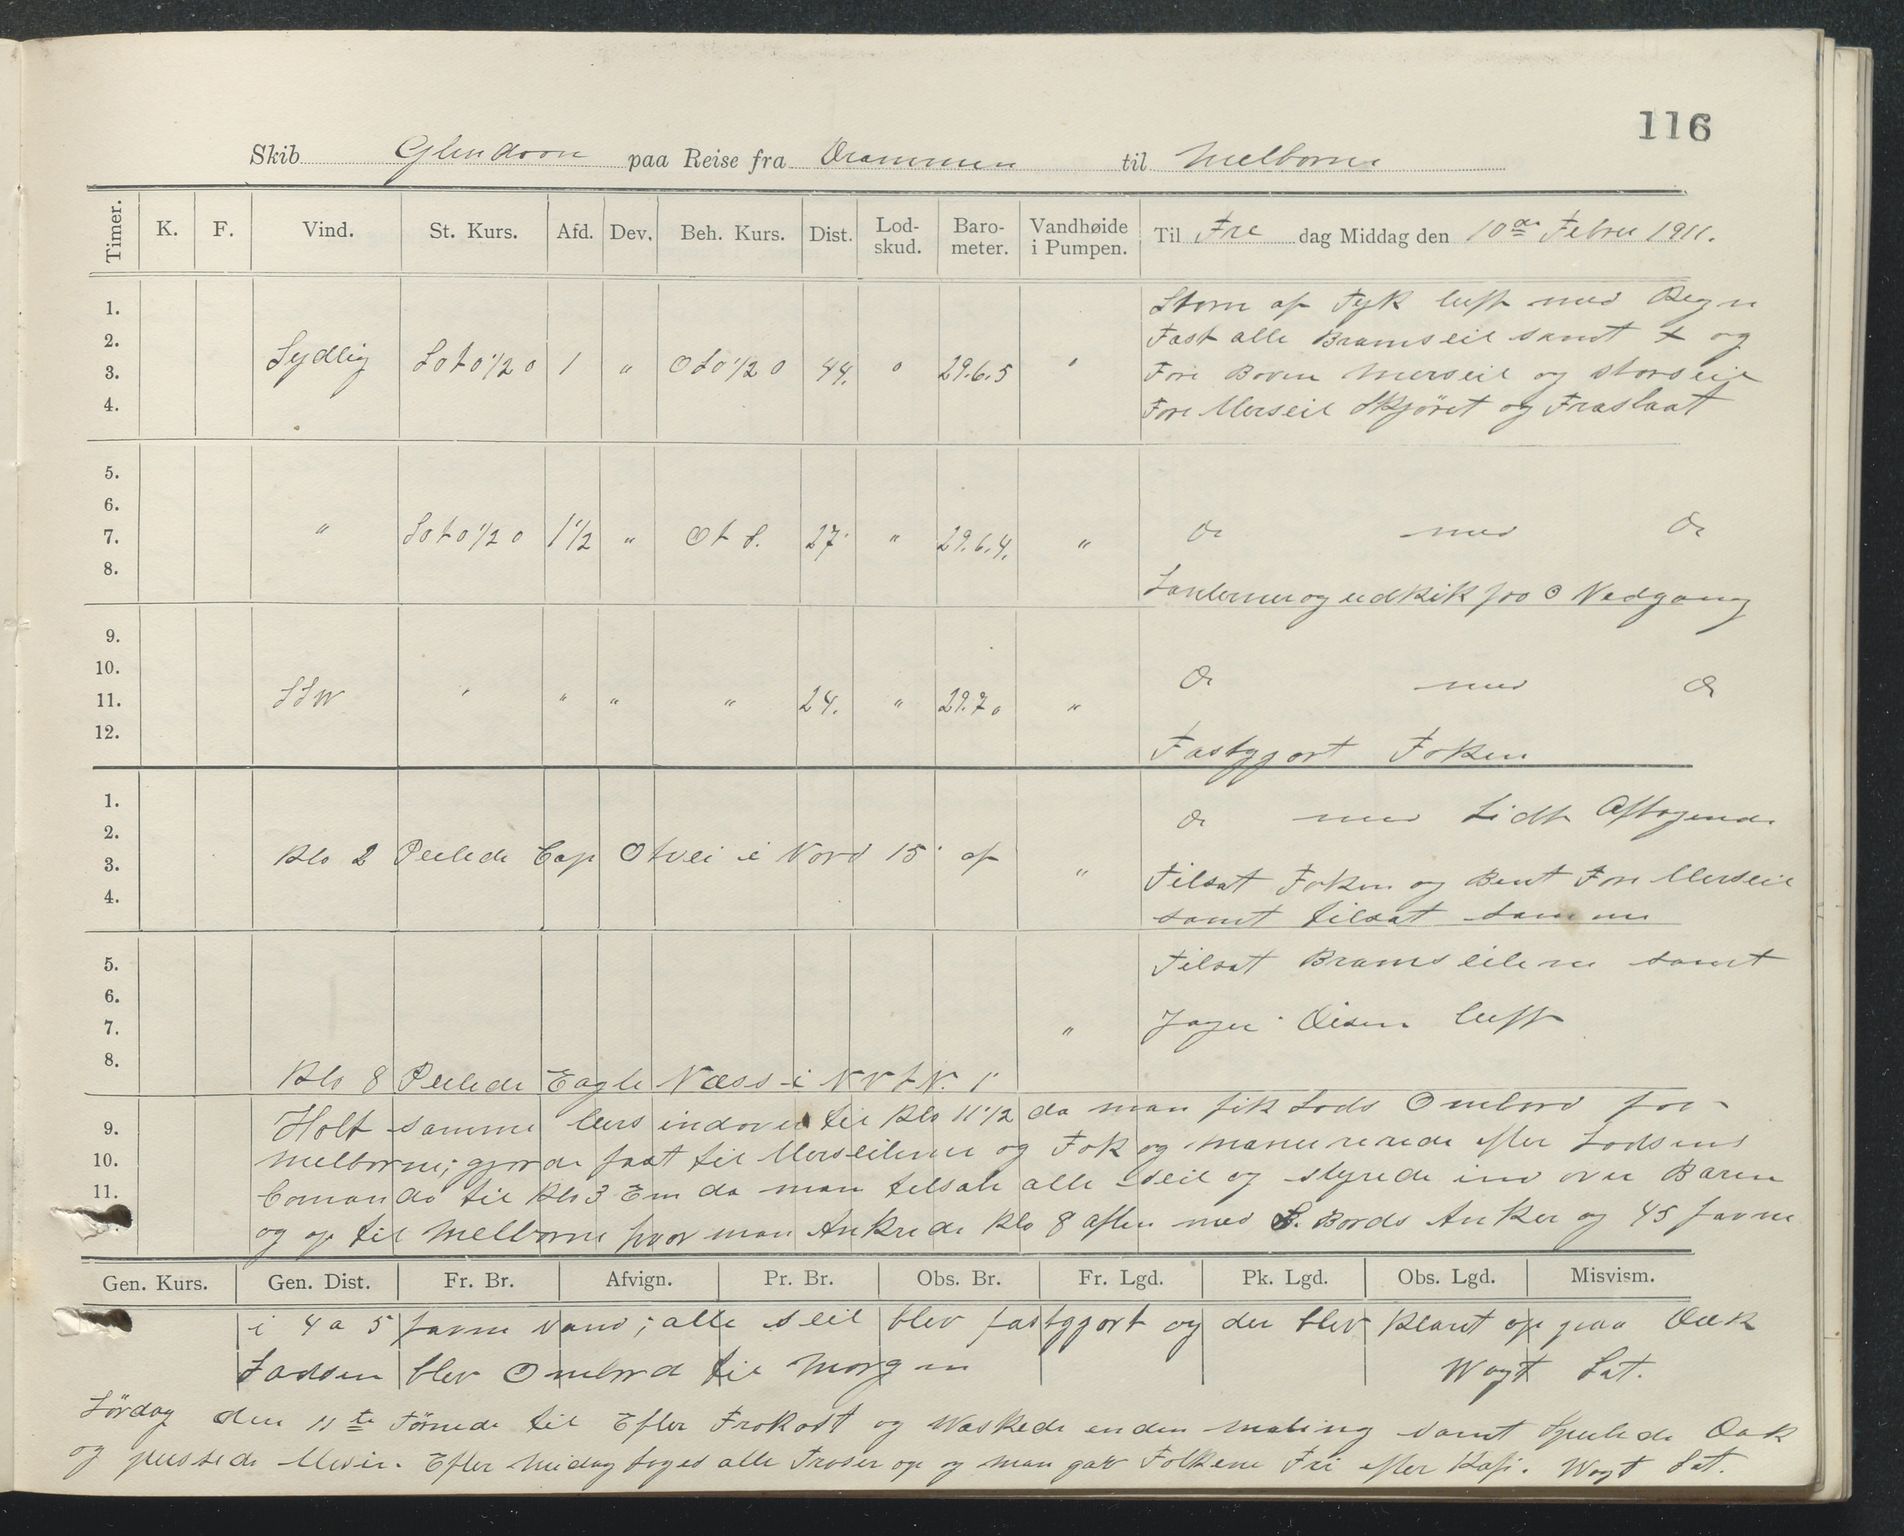 116
Skib Glendoon paa Reise fra Drammen til Melborne
Timer. K. F. Vind. St. Kurs. Afd. Dev. Beh. Kurs. Dist. Lod-skud. Baro-meter. Vandhøide i Pumpen. Til Fre dag Middag den 10de Febru 1911.
1.
2.
3.
4.
Sydlig SOtO1/2O 1 " OSO1/2O 44. " 29.6.5 "
Storm af Tyk luft med Regn
Fast alle Bramseil samt + og
Fore Boven Merseil og storseil
Fore Merseil Skjøret og Fraslaat
5.
6.
7.
8.
" SOtO1/2O 1 1/2 " OtS. 27 " 29.6.4. "
Do med Do
Lanterner og udkik fra O Nedgang
9.
10.
11.
12.
SSW " " " " 24. " 29.70 "
Do med Do
Fastgjort Fokken
1.
2.
3.
4.
Klo 2 Peilede Cap Otvei i Nord 15' af "
Do med Lidt Aftagende
Tilsat Foken og Bent Fore Merseil
samt tilsat samme
5.
6.
7.
8.
Tilsat Bramseilene samt
" Jager Disen luft
Klo 8 Peilede Eagle Næss i NVtN. 1'
9.
10.
11.
Holt samme Curs indover til Klo 11 1/2 da man fik Lods Ombord for
Melborne; gjorde fast til Merseilene og Fok og manurerede efter Lodsens
Comando til Klo 3 Em da man tilsate alle seil og styrede ind over Baren
og op til Melborne hvor man Ankrede Klo 8 aften med S. Bords Anker og 45 favne
Gen. Kurs. Gen. Dist. Fr. Br. Afvign. Pr. Br. Obs. Br. Fr. Lgd. Pk. Lgd. Obs. Lgd. Misvism.
i 4 a 5 favne vand; alle seil blev fastgjort og der blev klaret op paa Dæk
Lodsen blev Ombord til Morgen Wagt Sat.
Lørdag den 11te Tørnede til Efter Frokost og Waskede enden maling samt Spulede Dæk
og pussede Messin. Efter Midag toges alle Troser op og man gav Folkene Fri efter Kafi. Wagt Sat.